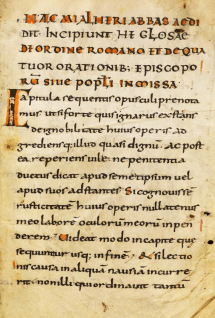 HAEC AMALHERI ABBAS AEDI
DIT. INCIPIUNT HE GLOSAE
DE ORDINE ROMANO ET DE QUA
TUOR ORATIONIB; EPISCOPO
RŪ SIVE POPŁI IN MISSA
Capitula sequentis opusculi prenota
mus ut si forte quis ignarus existans
de ignobilitate huius operis ad
grediens quillud quasi dignū ac post
ea reperiens vile ne penitentia
ductus dicat apud semetipsum vel
apud suos adstantes Si cognovisse
rusticitatē huius operis nullatenus
meo labore oculorū meorū inpen
derem Videat modo in capite quę
sequuntur usq; in fine & si lectio
nis causa in aliquā nausiā incurre
rit non illi que ordinavit tantum